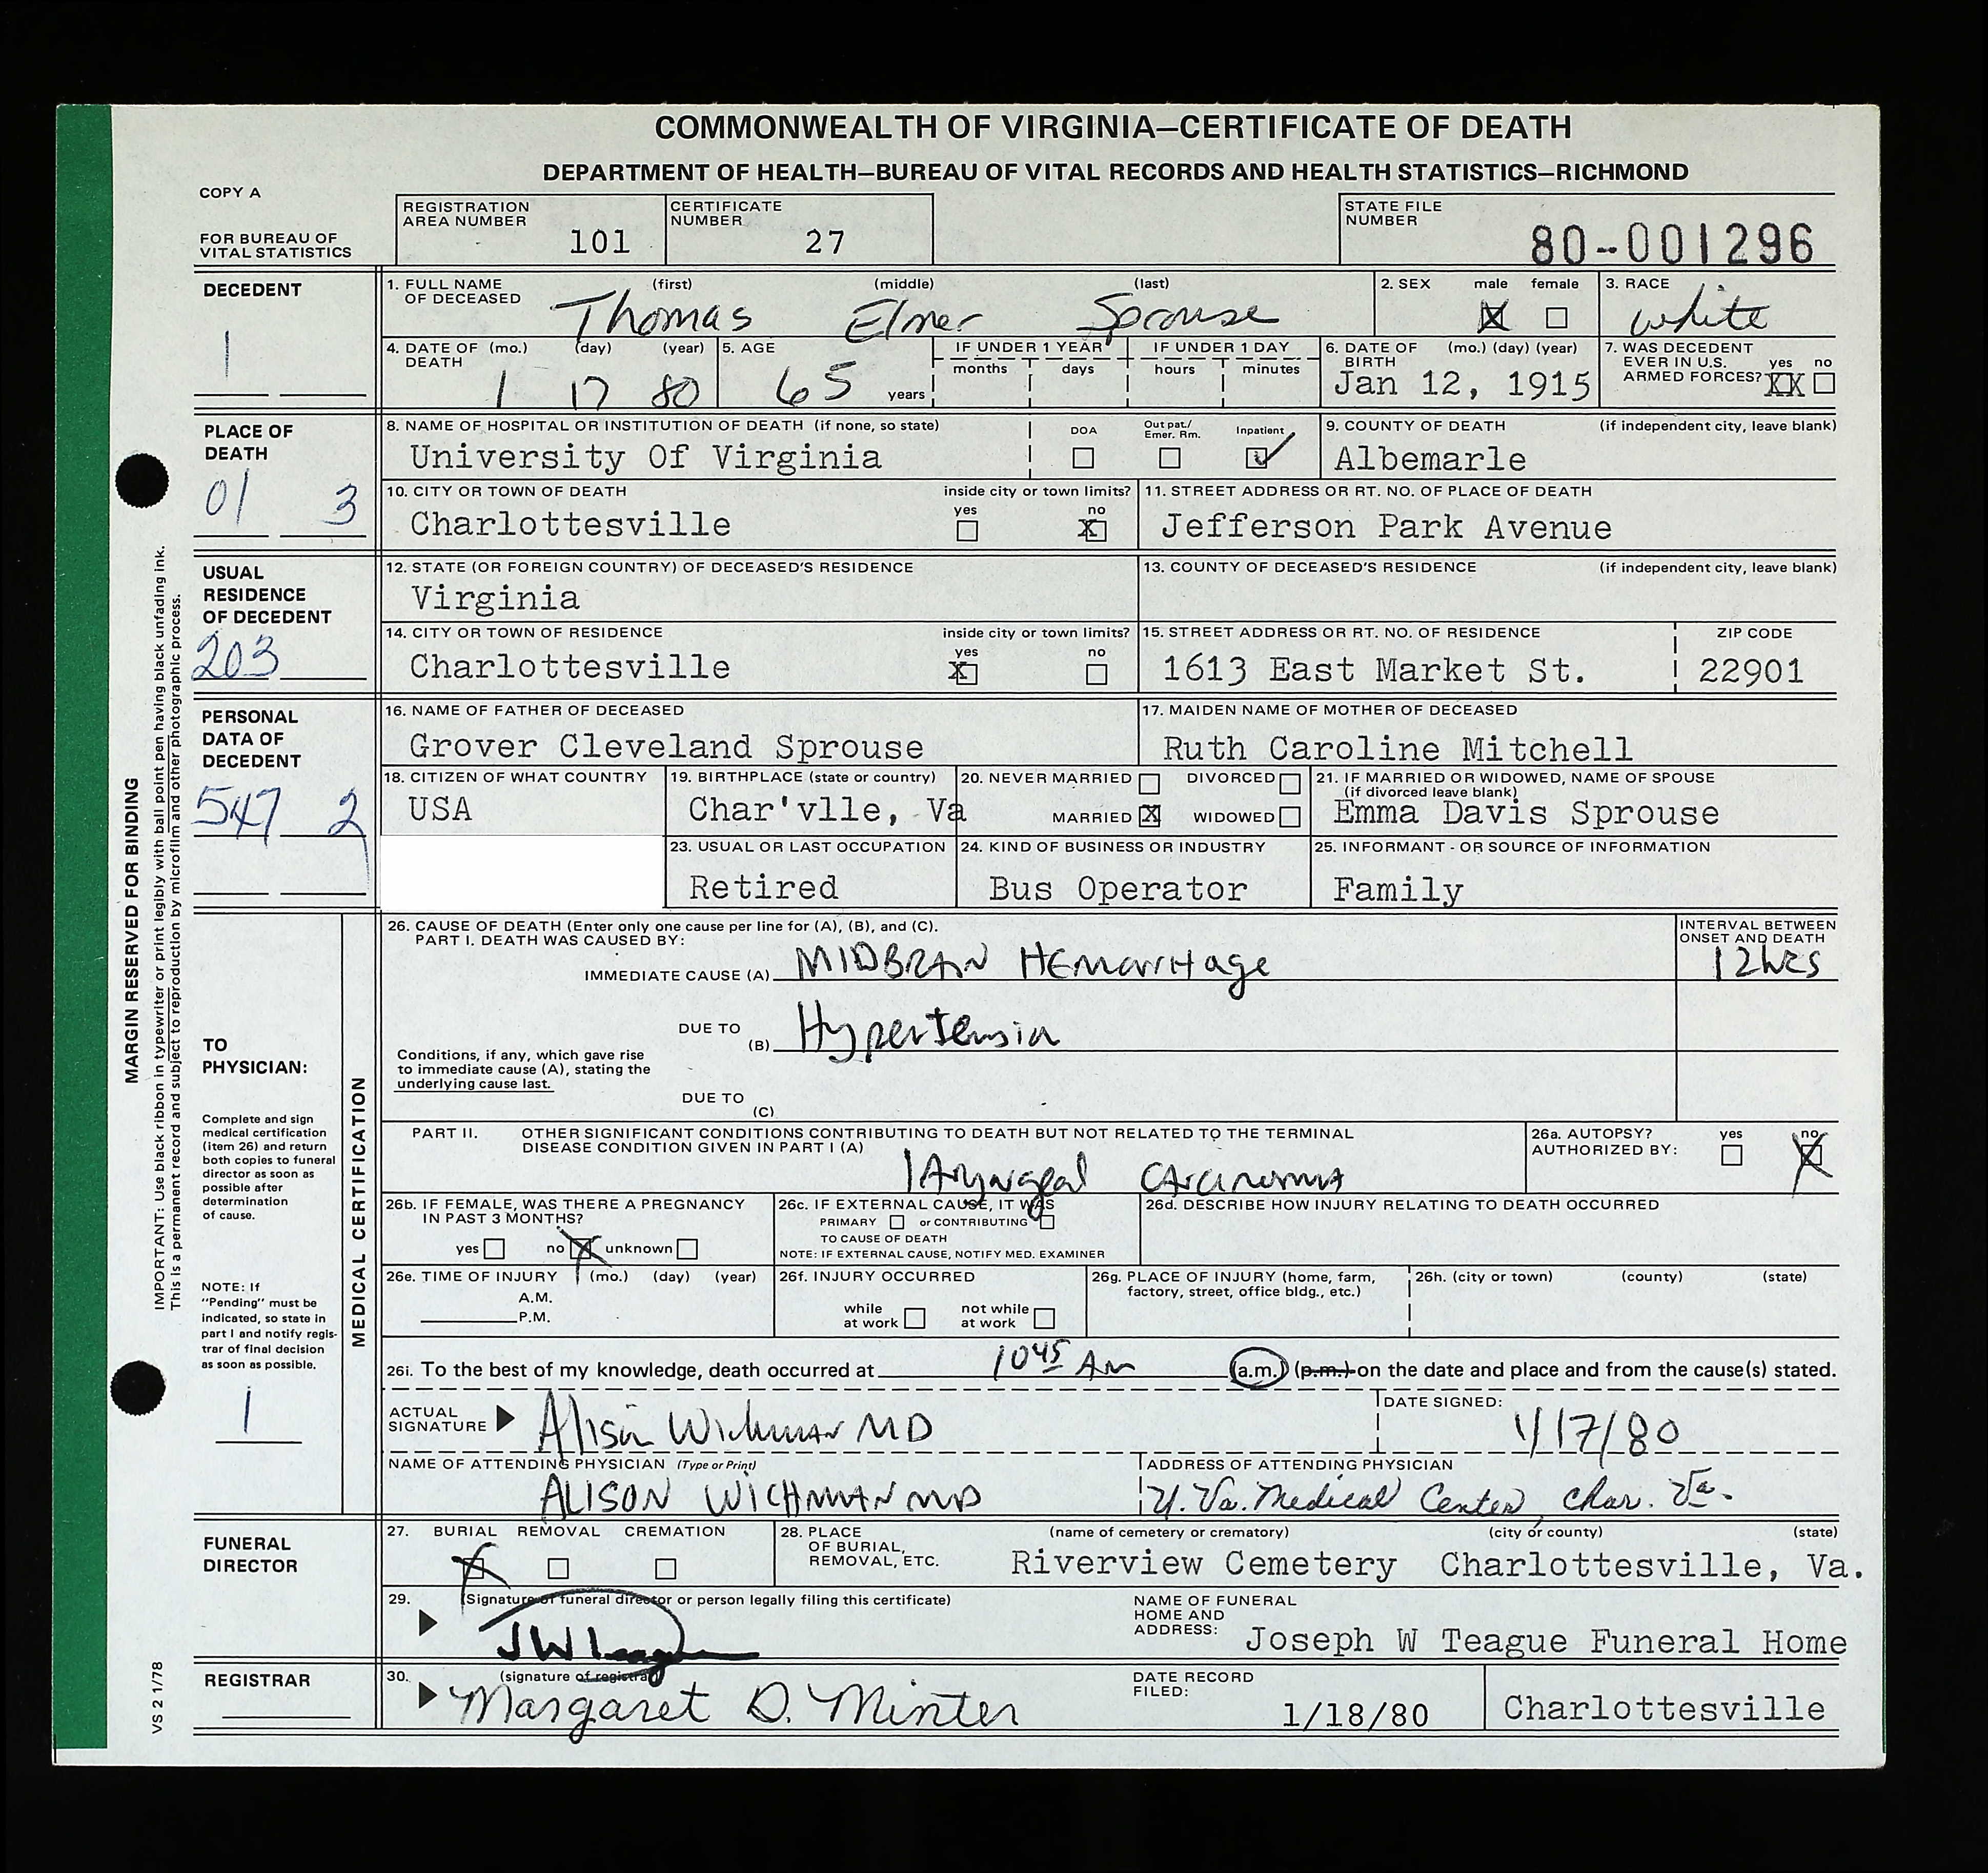 COMMONWEALTH OF VIRGINIA—CERTIFICATE OF DEATH
DEPARTMENT OF HEALTH—BUREAU OF VITAL RECORDS AND HEALTH STATISTICS—RICHMOND
COPY A
FOR BUREAU OF
VITAL STATISTICS
REGISTRATION
AREA NUMBER 101
CERTIFICATE
NUMBER 27
STATE FILE
NUMBER 80-001296
DECEDENT
1
1. FULL NAME (first) (middle) (last)
OF DECEASED Thomas Elmer Sprouse
2. SEX male female
X
3. RACE
white
4. DATE OF (mo.) (day) (year)
DEATH 1 17 80
5. AGE
65 years
IF UNDER 1 YEAR
months days
IF UNDER 1 DAY
hours minutes
6. DATE OF (mo.) (day) (year)
BIRTH
Jan 12, 1915
7. WAS DECEDENT
EVER IN U.S. yes no
ARMED FORCES? XX
PLACE OF
DEATH
01 3
8. NAME OF HOSPITAL OR INSTITUTION OF DEATH (if none, so state)
University Of Virginia
DOA Out pat./ Emer. Rm. Inpatient
9. COUNTY OF DEATH (if independent city, leave blank)
Albemarle
10. CITY OR TOWN OF DEATH inside city or town limits?
yes no
Charlottesville X
11. STREET ADDRESS OR RT. NO. OF PLACE OF DEATH
Jefferson Park Avenue
USUAL
RESIDENCE
OF DECEDENT
203
12. STATE (OR FOREIGN COUNTRY) OF DECEASED'S RESIDENCE
Virginia
13. COUNTY OF DECEASED'S RESIDENCE (if independent city, leave blank)
14. CITY OR TOWN OF RESIDENCE inside city or town limits?
yes no
Charlottesville X
15. STREET ADDRESS OR RT. NO. OF RESIDENCE ZIP CODE
1613 East Market St. 22901
PERSONAL
DATA OF
DECEDENT
547 2
16. NAME OF FATHER OF DECEASED
Grover Cleveland Sprouse
17. MAIDEN NAME OF MOTHER OF DECEASED
Ruth Caroline Mitchell
18. CITIZEN OF WHAT COUNTRY
USA
19. BIRTHPLACE (state or country)
Char'vlle, Va
20. NEVER MARRIED DIVORCED
MARRIED X WIDOWED
21. IF MARRIED OR WIDOWED, NAME OF SPOUSE
(if divorced leave blank)
Emma Davis Sprouse
23. USUAL OR LAST OCCUPATION
Retired
24. KIND OF BUSINESS OR INDUSTRY
Bus Operator
25. INFORMANT - OR SOURCE OF INFORMATION
Family
MARGIN RESERVED FOR BINDING
IMPORTANT: Use black ribbon in typewriter or print legibly with ball point pen having black unfading ink.
This is a permanent record and subject to reproduction by microfilm and other photographic process.
TO
PHYSICIAN:
Complete and sign
medical certification
(item 26) and return
both copies to funeral
director as soon as
possible after
determination
of cause.
NOTE: If
"Pending" must be
indicated, so state in
part I and notify regis-
trar of final decision
as soon as possible.
1
MEDICAL CERTIFICATION
26. CAUSE OF DEATH (Enter only one cause per line for (A), (B), and (C).
PART I. DEATH WAS CAUSED BY:
INTERVAL BETWEEN
ONSET AND DEATH
IMMEDIATE CAUSE (A) MIDBRAIN Hemorrhage 12hrs
DUE TO
(B) Hypertension
Conditions, if any, which gave rise
to immediate cause (A), stating the
underlying cause last.
DUE TO
(C)
PART II. OTHER SIGNIFICANT CONDITIONS CONTRIBUTING TO DEATH BUT NOT RELATED TO THE TERMINAL
DISEASE CONDITION GIVEN IN PART I (A)
laryngeal carcinoma
26a. AUTOPSY? yes no
AUTHORIZED BY: X
26b. IF FEMALE, WAS THERE A PREGNANCY
IN PAST 3 MONTHS?
yes no X unknown
26c. IF EXTERNAL CAUSE, IT WAS
PRIMARY or CONTRIBUTING
TO CAUSE OF DEATH
NOTE: IF EXTERNAL CAUSE, NOTIFY MED. EXAMINER
26d. DESCRIBE HOW INJURY RELATING TO DEATH OCCURRED
26e. TIME OF INJURY (mo.) (day) (year)
A.M.
P.M.
26f. INJURY OCCURRED
while at work not while at work
26g. PLACE OF INJURY (home, farm,
factory, street, office bldg., etc.)
26h. (city or town) (county) (state)
26i. To the best of my knowledge, death occurred at 10 45 AM (a.m.) (p.m.) on the date and place and from the cause(s) stated.
ACTUAL
SIGNATURE Alison Wichman MD
DATE SIGNED:
1/17/80
NAME OF ATTENDING PHYSICIAN (Type or Print)
ALISON WICHMAN MD
ADDRESS OF ATTENDING PHYSICIAN
U. Va. Medical Center, Char. Va.
FUNERAL
DIRECTOR
27. BURIAL REMOVAL CREMATION
X
28. PLACE (name of cemetery or crematory) (city or county) (state)
OF BURIAL,
REMOVAL, ETC. Riverview Cemetery Charlottesville, Va.
29. (Signature of funeral director or person legally filing this certificate)
JW Teague
NAME OF FUNERAL
HOME AND
ADDRESS: Joseph W Teague Funeral Home
REGISTRAR
30. (signature of registrar)
Margaret D. Minter
DATE RECORD
FILED: 1/18/80
Charlottesville
VS 2 1/78